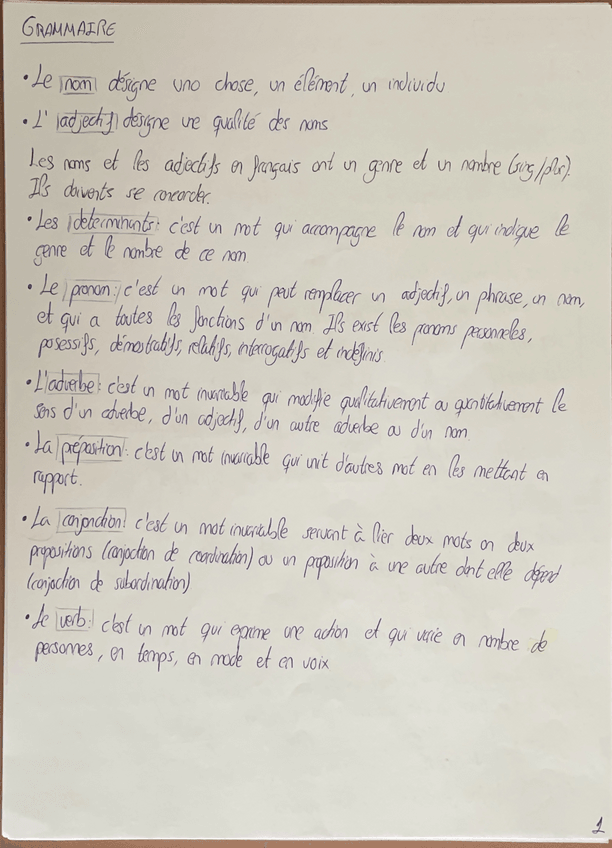 GRAMMAIRE
• Le nom désigne uno chose, un élément, un individu
• L' adjectif désigne une qualité des noms
Les noms et les adjectifs en français ont un genre et un nombre (sing/plur).
Ils doivents se concorder.
• Les determinants: c'est un mot qui accompagne le nom et qui indique le
genre et le nombre de ce nom
• Le pronom: c'est un mot qui peut remplacer un adjectif, un phrase, un nom,
et qui a toutes les fonctions d'un nom Ils exist les pronoms personneles,
posessifs, démostratifs, relatifs, interrogatifs et indéfinis
• L'adverbe: c'est un mot invariable qui modifie qualitativement ou quantitativement le
sens d'un adverbe, d'un adjectif, d'un autre adverbe ou d'un nom
• La préposition: c'est un mot invariable qui unit d'autres mot en les mettant en
rapport.
• La conjonction: c'est un mot invariable servant à lier deux mots on deux
propositions (conjoction de coordination) ou un proposition à une autre dont elle dépend
(conjoction de subordination)
• Le verb: c'est un mot qui eprime une action et qui varie en nombre de
personnes, en temps, en mode et en voix
1